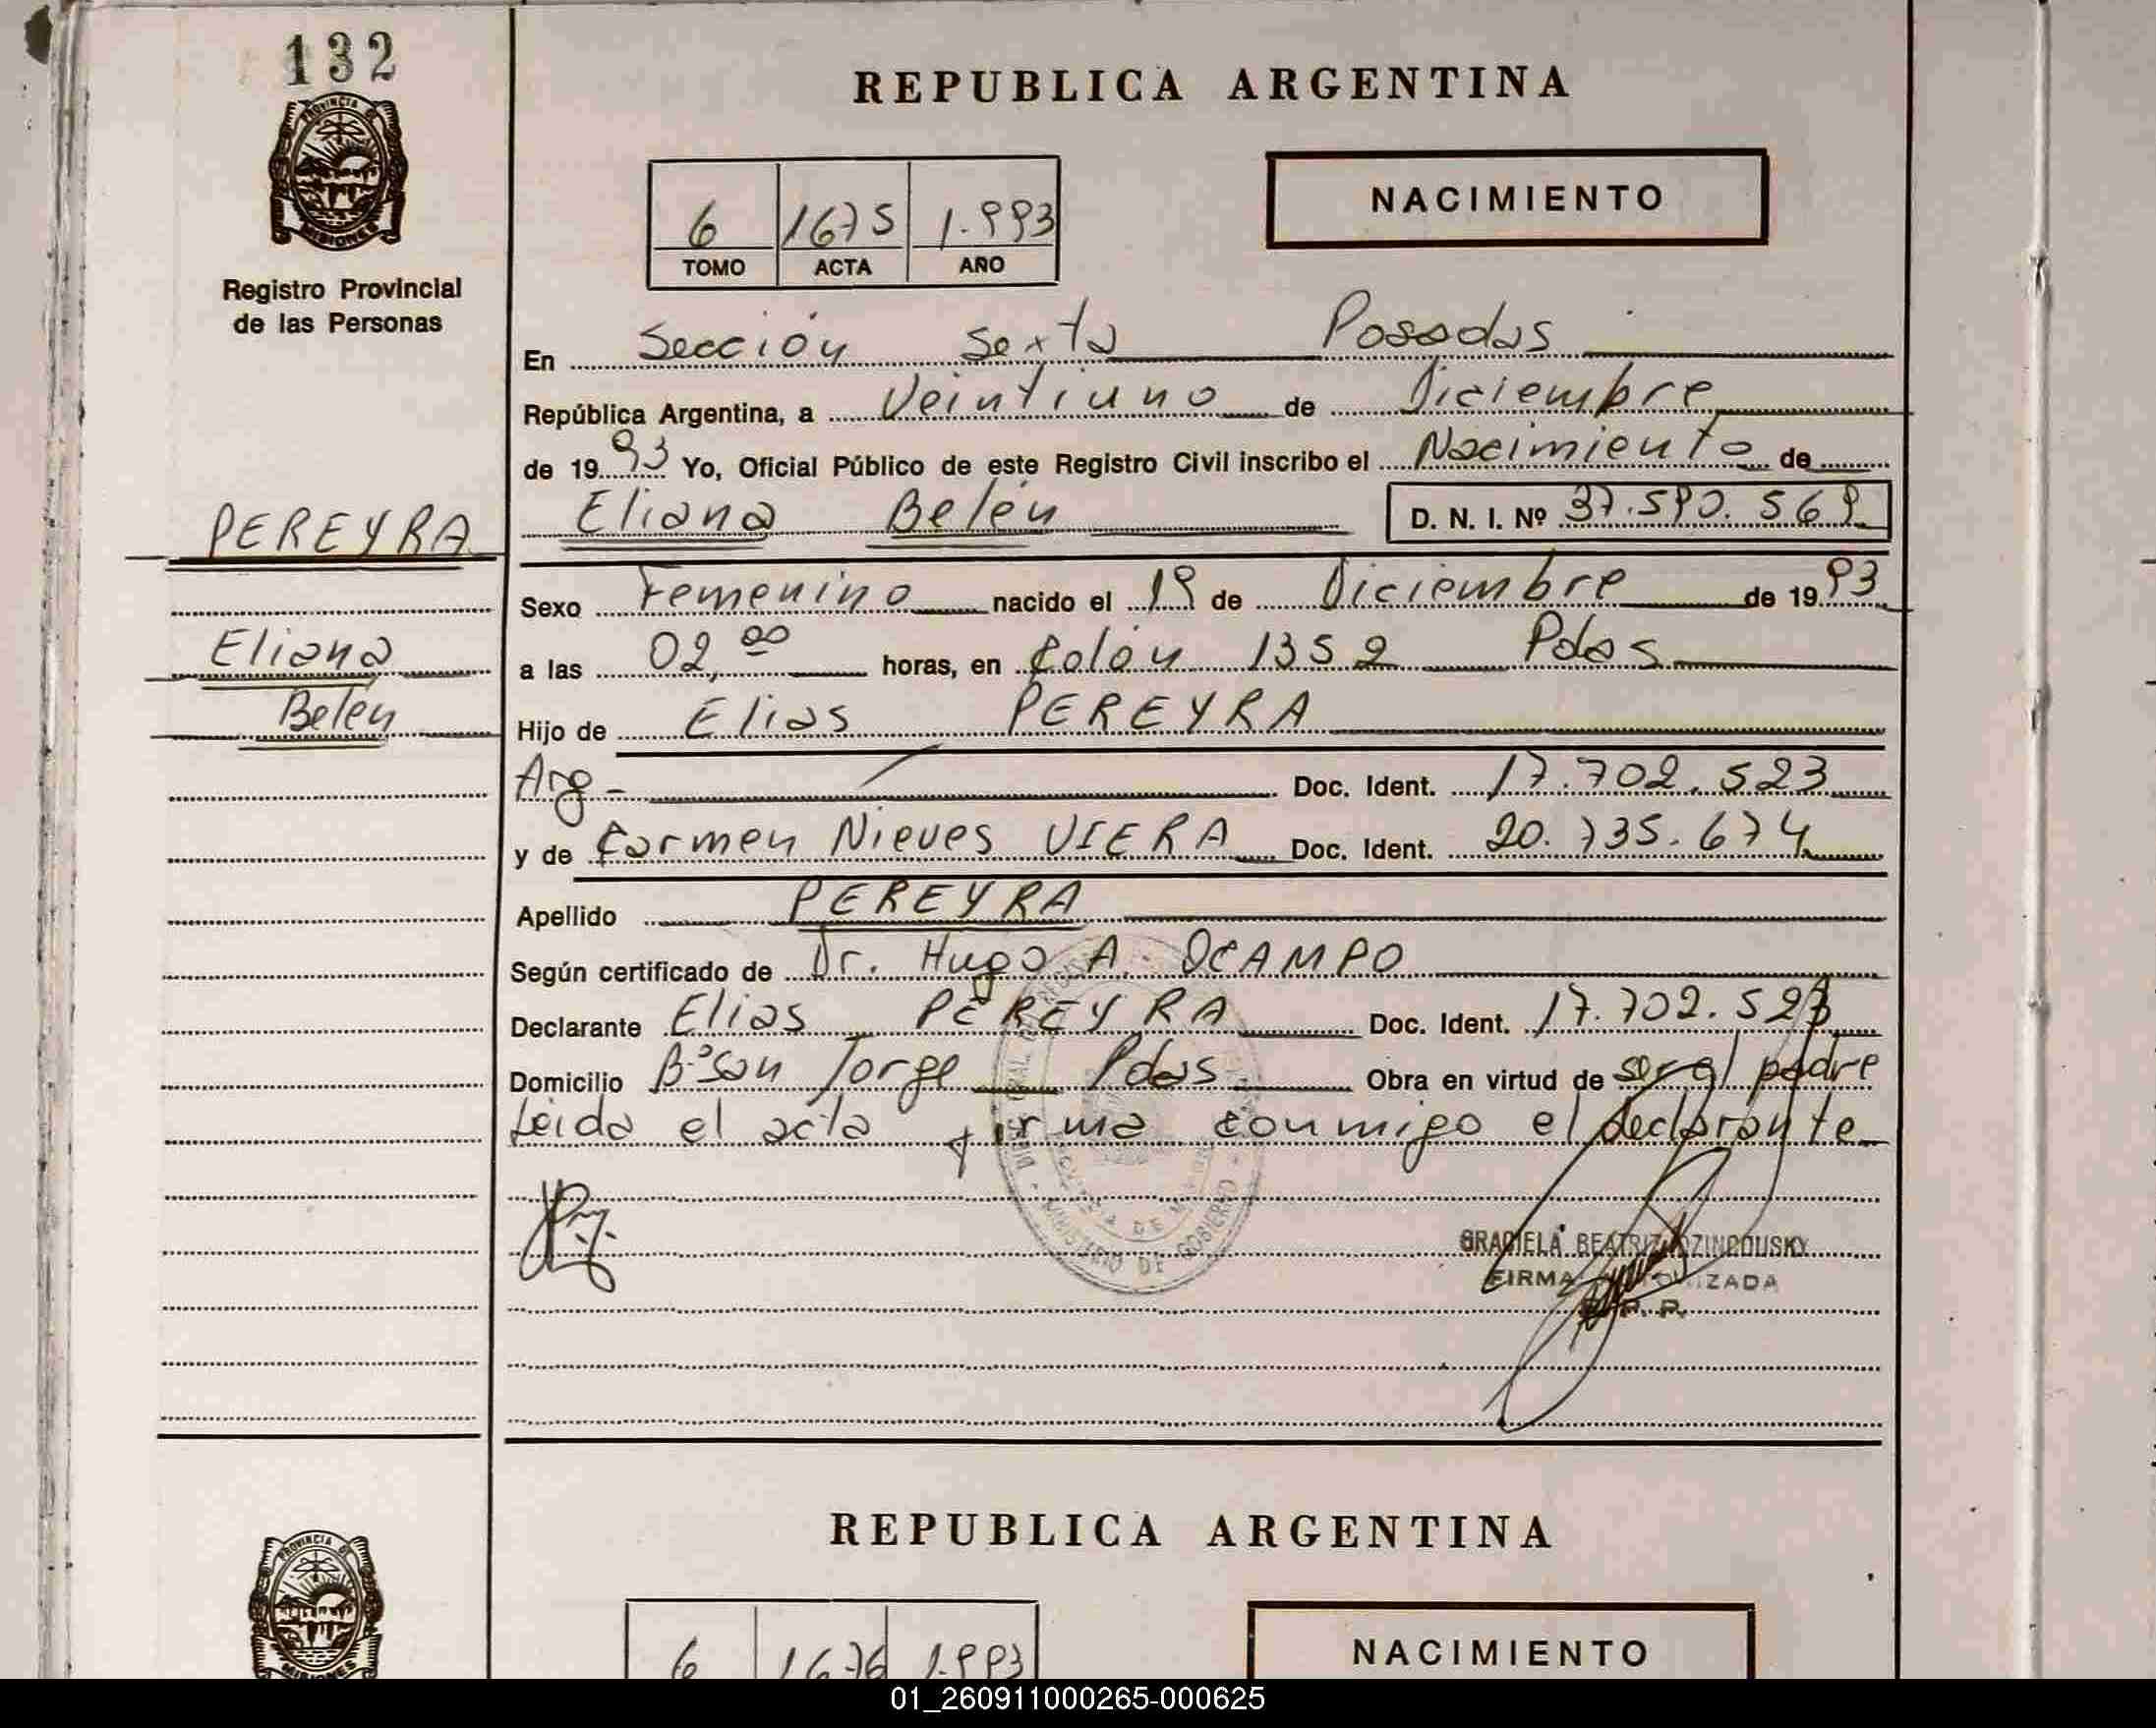 132
PROVINCIA DE
MISIONES
Registro Provincial
de las Personas
PEREYRA
Eliana
Belén
REPUBLICA ARGENTINA
6 1675 1.993
TOMO ACTA AÑO
NACIMIENTO
En Sección Sexta Posadas
República Argentina, a Veintiuno de Diciembre
de 1993 Yo, Oficial Público de este Registro Civil inscribo el Nacimiento de
Eliana Belén D. N. I. Nº 37.590.569
Sexo Femenino nacido el 19 de Diciembre de 1993
a las 02,00 horas, en Colón 1352 Pdas
Hijo de Elias PEREYRA
Arg- Doc. Ident. 17.702.523
y de Carmen Nieves VIERA Doc. Ident. 20.735.674
Apellido PEREYRA
Según certificado de Dr. Hugo A. OCAMPO
Declarante Elias PEREYRA Doc. Ident. 17.702.523
Domicilio Bº San Jorge Pdas Obra en virtud de ser el padre
Leida el acta firma conmigo el declarante
MINISTERIO DE GOBIERNO
GRACIELA BEATRIZ
FIRMA
R. P. P.
REPUBLICA ARGENTINA
PROVINCIA DE
MISIONES
6 1676 1.993
NACIMIENTO
01_260911000265-000625